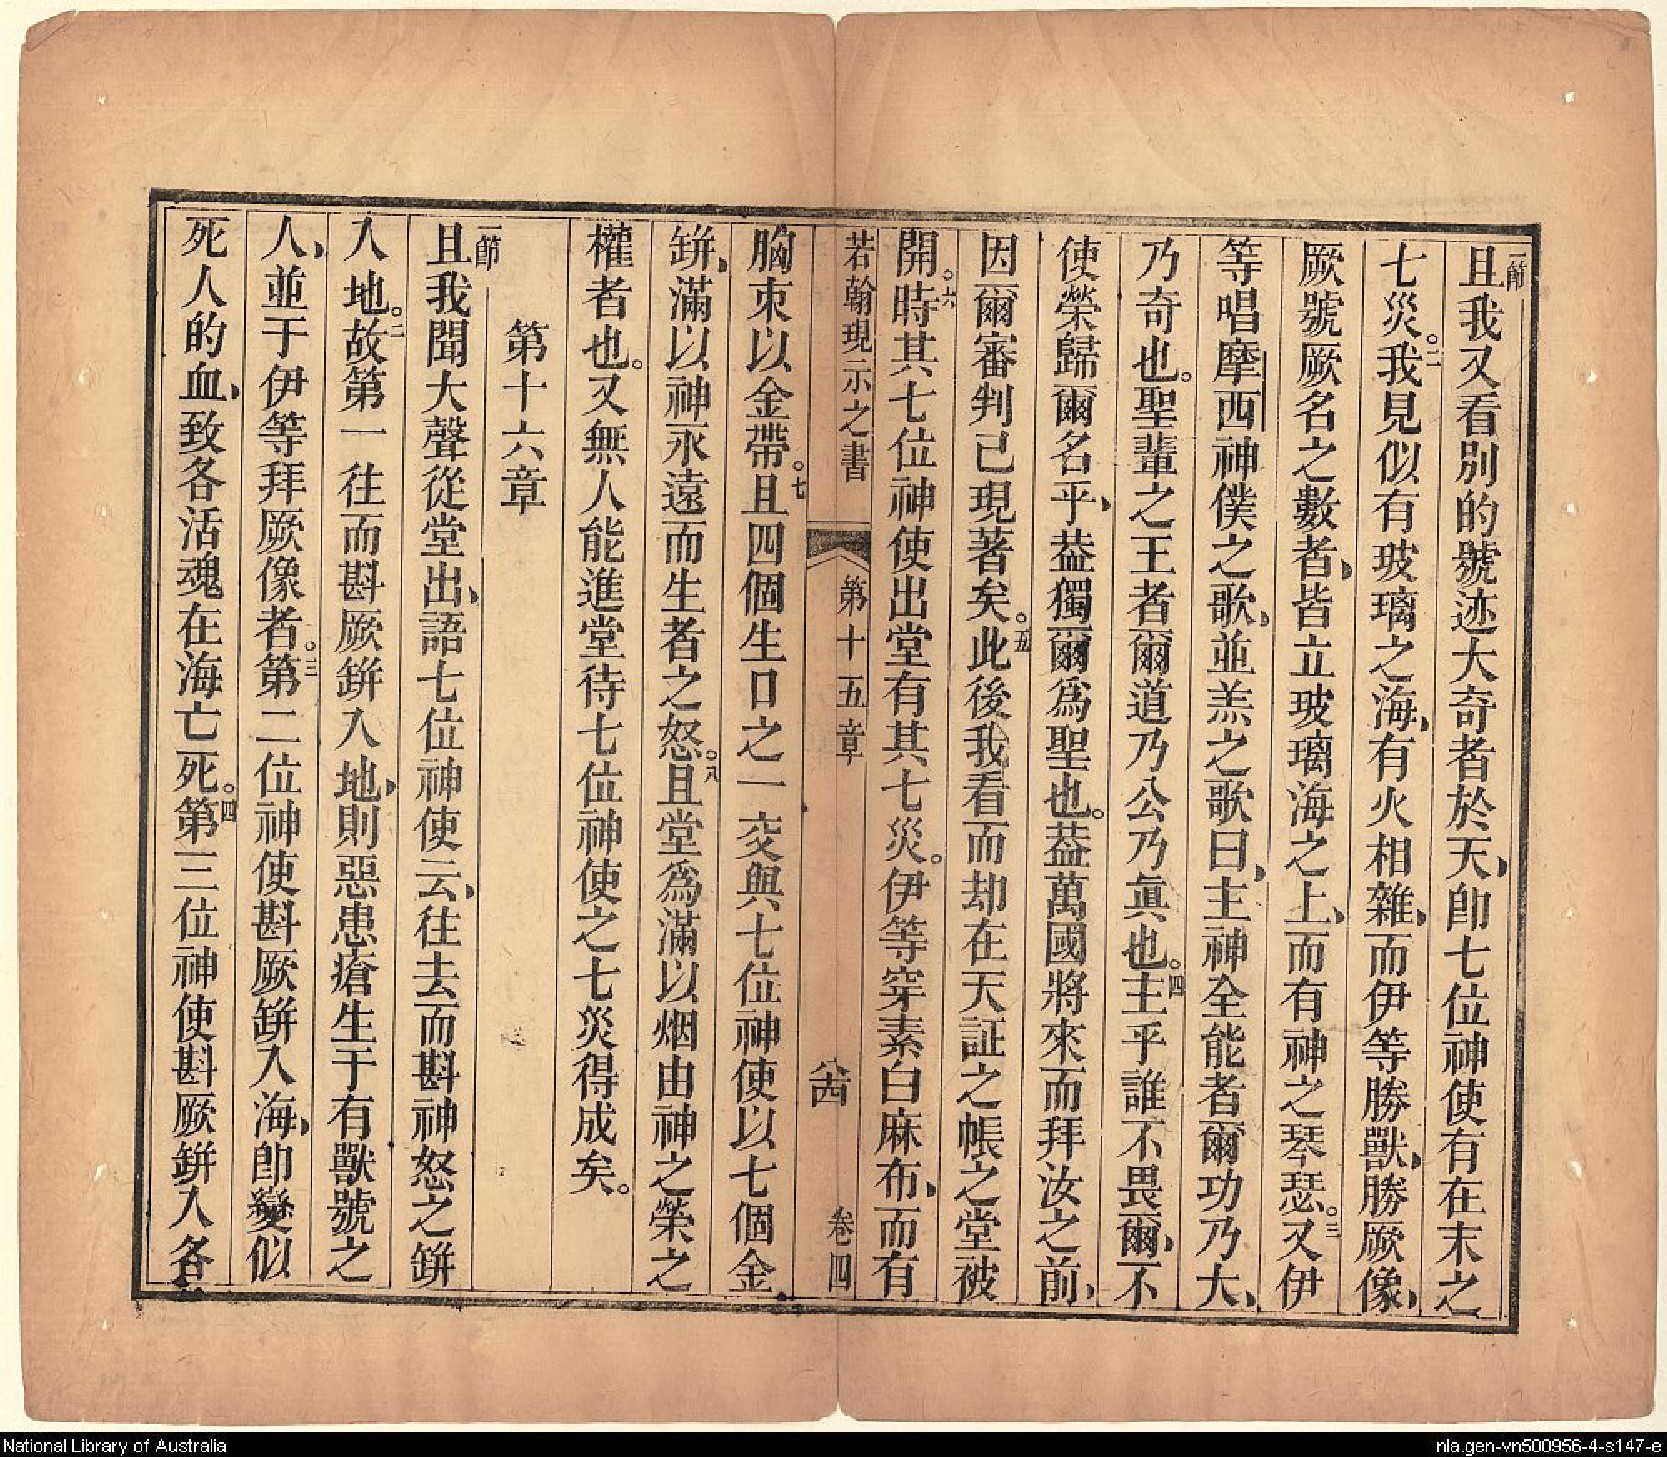 一節
且我又看別的號迹大奇者於天、卽七位神使有在末之
七災。二我見似有玻璃之海、有火相雜、而伊等勝獸、勝厥像、
厥號厥名之數者、皆立玻璃海之上、而有神之琴瑟。三又伊
等唱摩西神僕之歌、並羔之歌曰、主神全能者爾功乃大、
乃奇也。聖輩之王者爾道乃公乃眞也。四主乎誰不畏爾、不
使榮歸爾名乎、葢獨爾爲聖也。葢萬國將來而拜汝之前、
因爾審判已現著矣。五此後我看而却在天証之帳之堂被
開。六時其七位神使出堂有其七災。伊等穿素白麻布、而有
若翰現示之書
第十五章
卷四
胸束以金帶。七且四個生口之一交與七位神使以七個金
缾、滿以神永遠而生者之怒。八且堂爲滿以烟由神之榮之
權者也。又無人能進堂待七位神使之七災得成矣。
第十六章
一節
且我聞大聲從堂出、語七位神使云、往去而斟神怒之缾
入地。二故第一往而斟厥缾入地、則惡患瘡生于有獸號之
人、並于伊等拜厥像者。三第二位神使斟厥缾入海、卽變似
死人的血、致各活魂在海亡死。四第三位神使斟厥缾入各
National Library of Australia
nla.gen-vn500956-4-s147-e